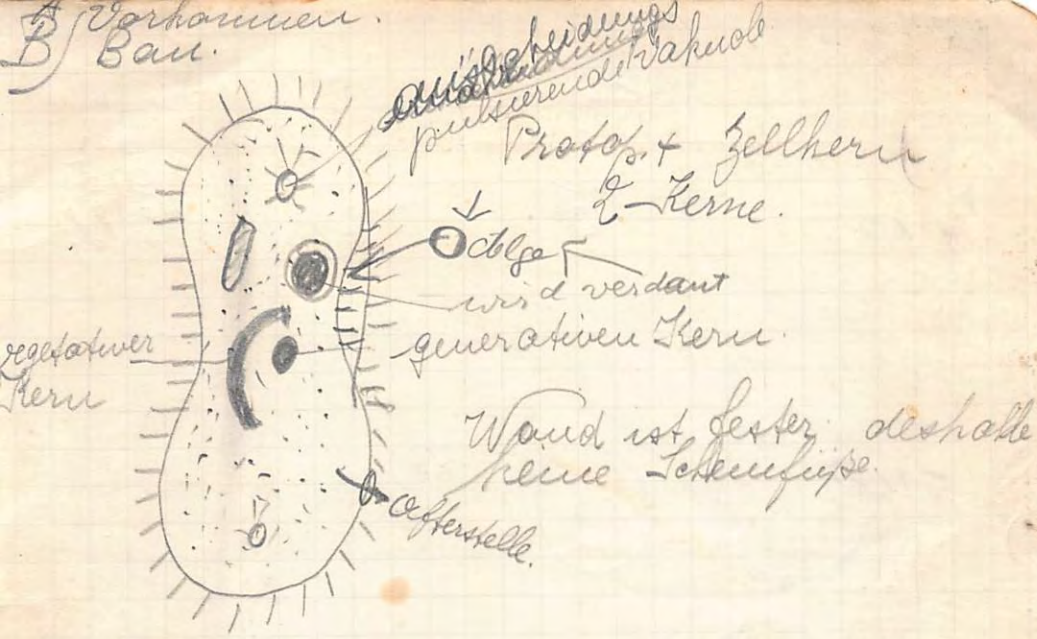 A) Vorkommen.
B) Bau.
ausscheidungs
pulsierende Vakuole
Protop. + Zellkern
2-Kerne.
Alge
wird verdaut
generativen Kern.
vegetativer
Kern
Wand ist fester deshalb
keine Scheinfüße.
Afterstelle.